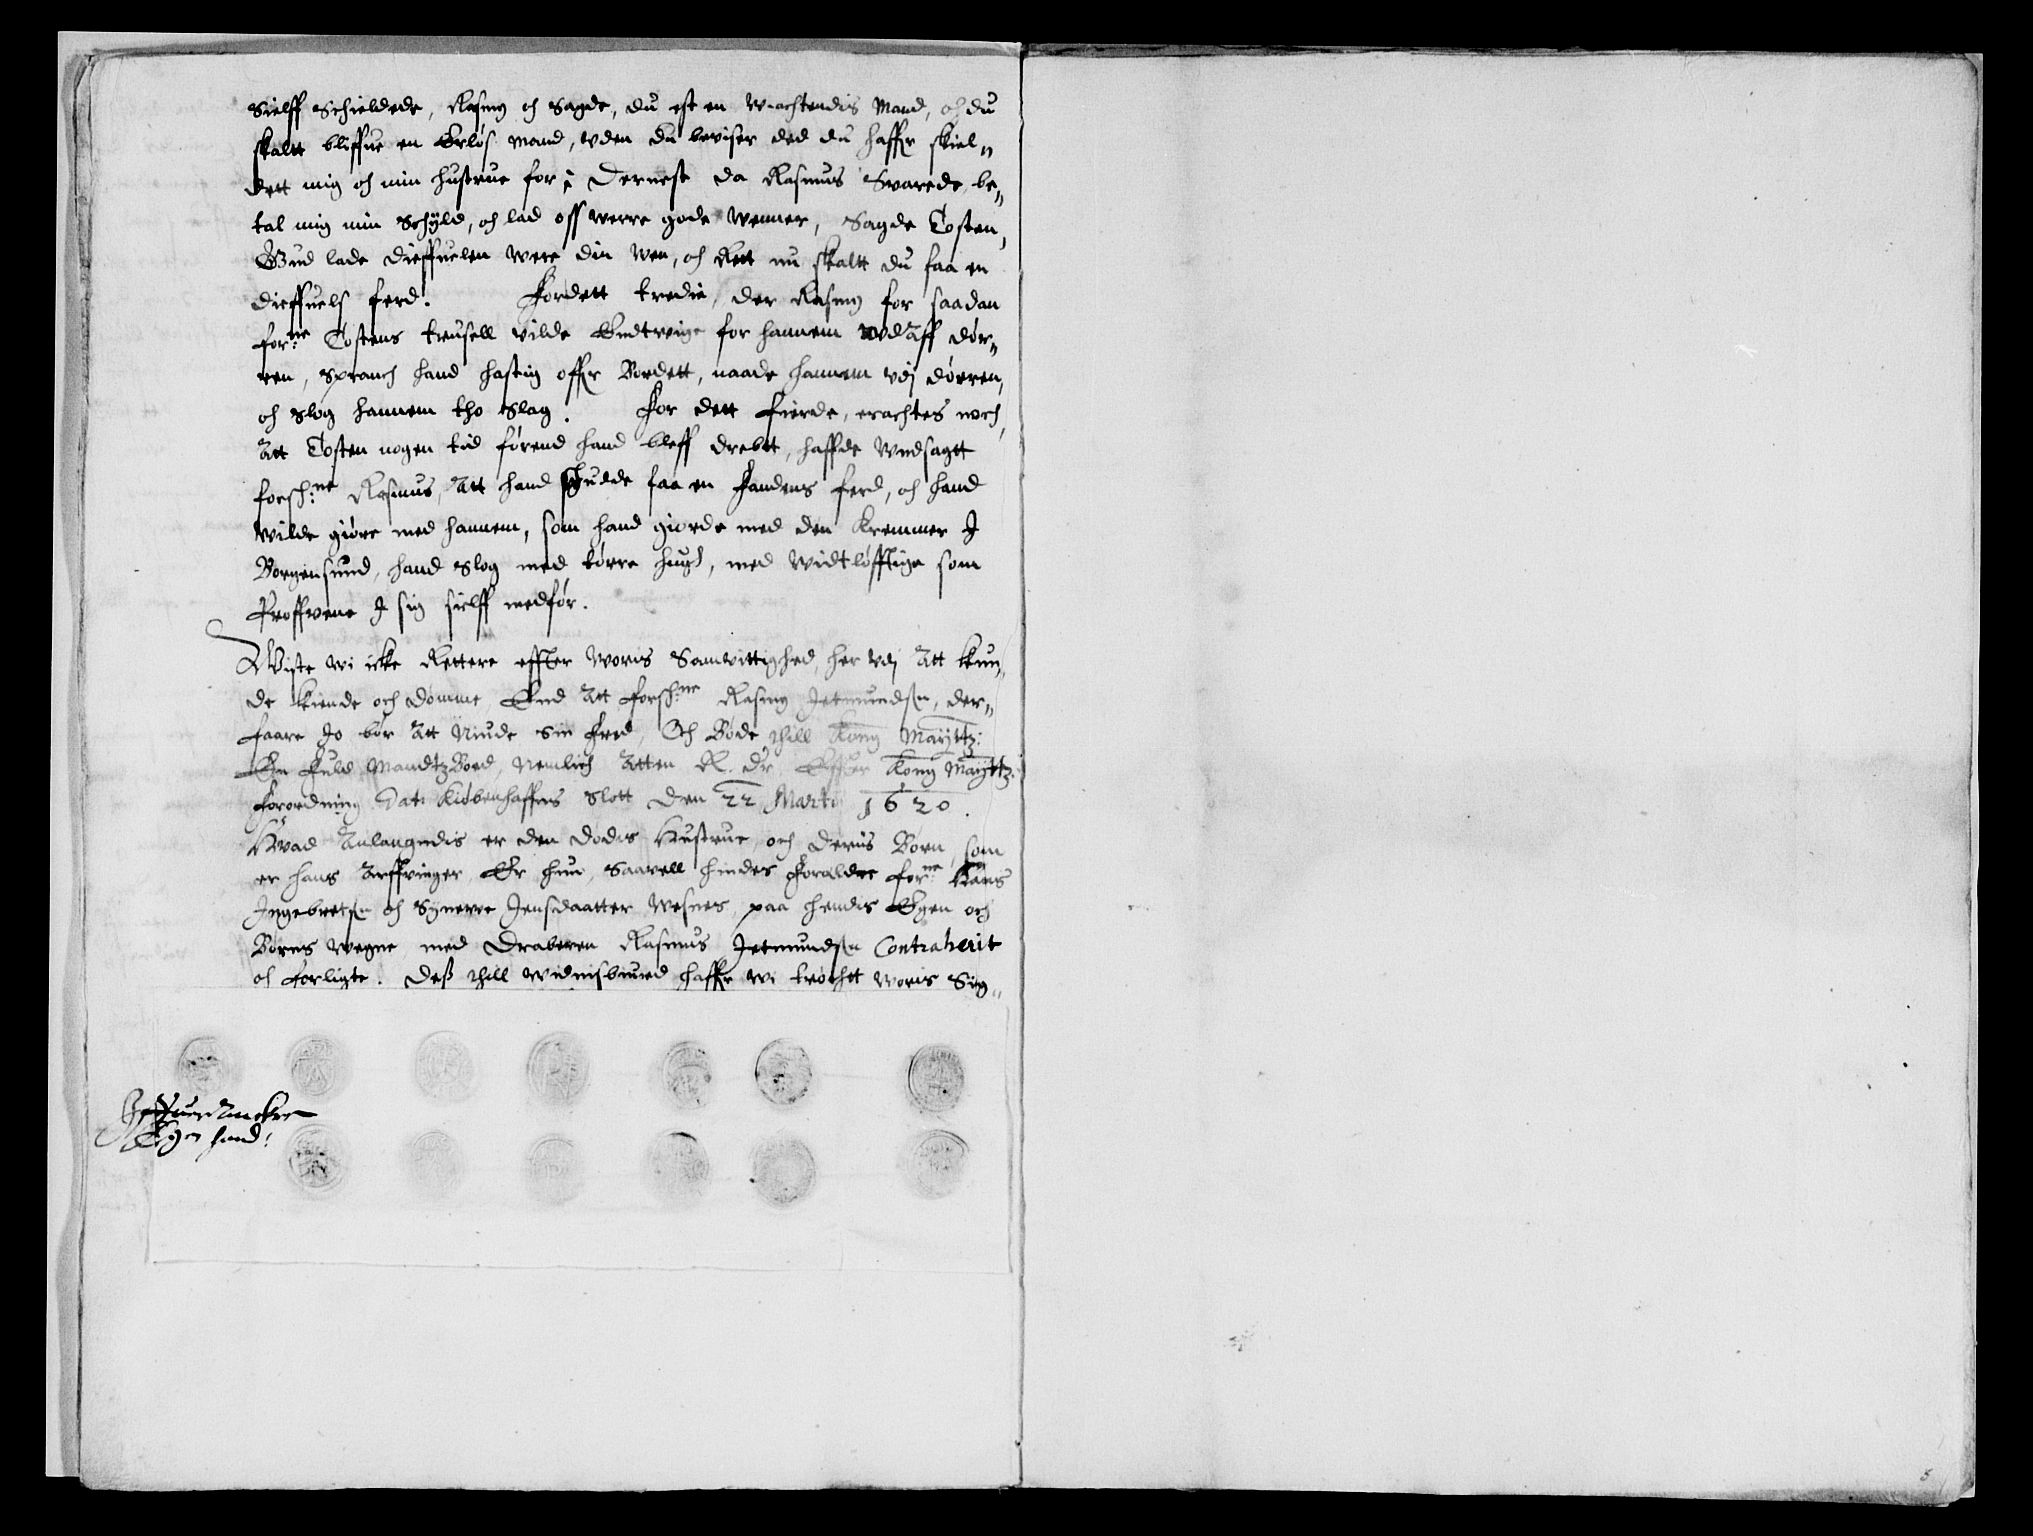 Sielff Schieldede, Rasmus och Sagde, du est en Wachtendis Mand, och du
skaltt bliffue en Erløs mand, vden du beviser ded du haffr skiel„
dett mig och min hustrue for, Dernest da Rasmus Svarede, be„
tal mig min Schyld, och lad oss werre gode Wenner, Sagde Tosten,
Gud lade dieffuelen were din Wen, och Rett nu skaltt du faa en
dieffuels ferd. Fordett tredie, der Rasmus for saadan
for:ne Tostens trusell vilde Endtwige for hannem wd aff dør„
ren, Spranch hand hastig offr Bordett, naade hannem vdj dørren,
och slog hannem tho Slag. For dett Fierde, erachtes noch,
Att Tosten nogen tid førend hand bleff drebt, haffde Wndsagtt
forsch:ne Rasmus, Att hand schulde faa en Fandens ferd, och hand
wilde giøre med hannem, som hand giorde med den Kremmer J
Borgensund, hand Slog med tørre hug, med Widtløfftige som
Proffvene J sig sielff medfør.
Wiste wi icke Rettere effter Woris Samvittighed, her vdj Att kun„
de kiende och domme End Att forsch:ne Rasmus Jetmundsøn, der„
faare Jo bør Att Niude Sin Fred, Och Bøde thill Kong Mayttz:
En Fuld Mandtz Boed, Nemlich Atten R. dr. Effter Kong Mayttz:
Forordning Dat: Kiøbenhaffns Slott den 22 Martij 1620.
Hvad Anlangendis er den dødis Hustrue och deris Børn, som
er hans Arffvinger, Er hun, Saavell hindes Foraldre for:ne Hans
Ingebretsøn och Synneve Jensdaatter Wesnes, paa hendis Egen och
Børns Wegne, med Draberen Rasmus Jetmundsøn Contraherit
och forligte. Deß thill Widnisbiurd haffr wi trøchtt Woris Sig„
Egen hand: